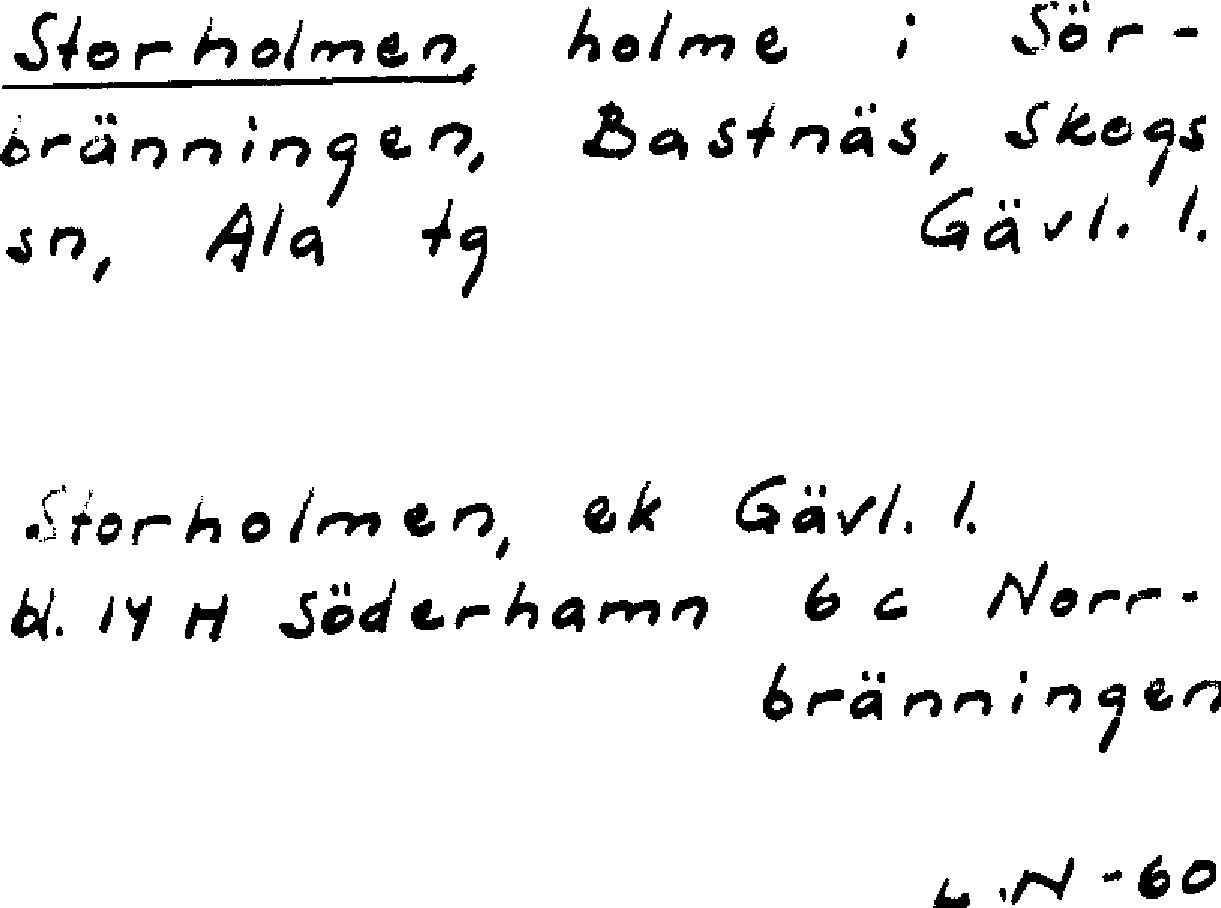 Storholmen, holme i Sör-
bränningen, Bastnäs, Skogs
sn, Ala tg Gävl. l.
Storholmen, ek Gävl. l.
bl. 14 H Söderhamn 6 c Norr-
bränningen
L.N -60